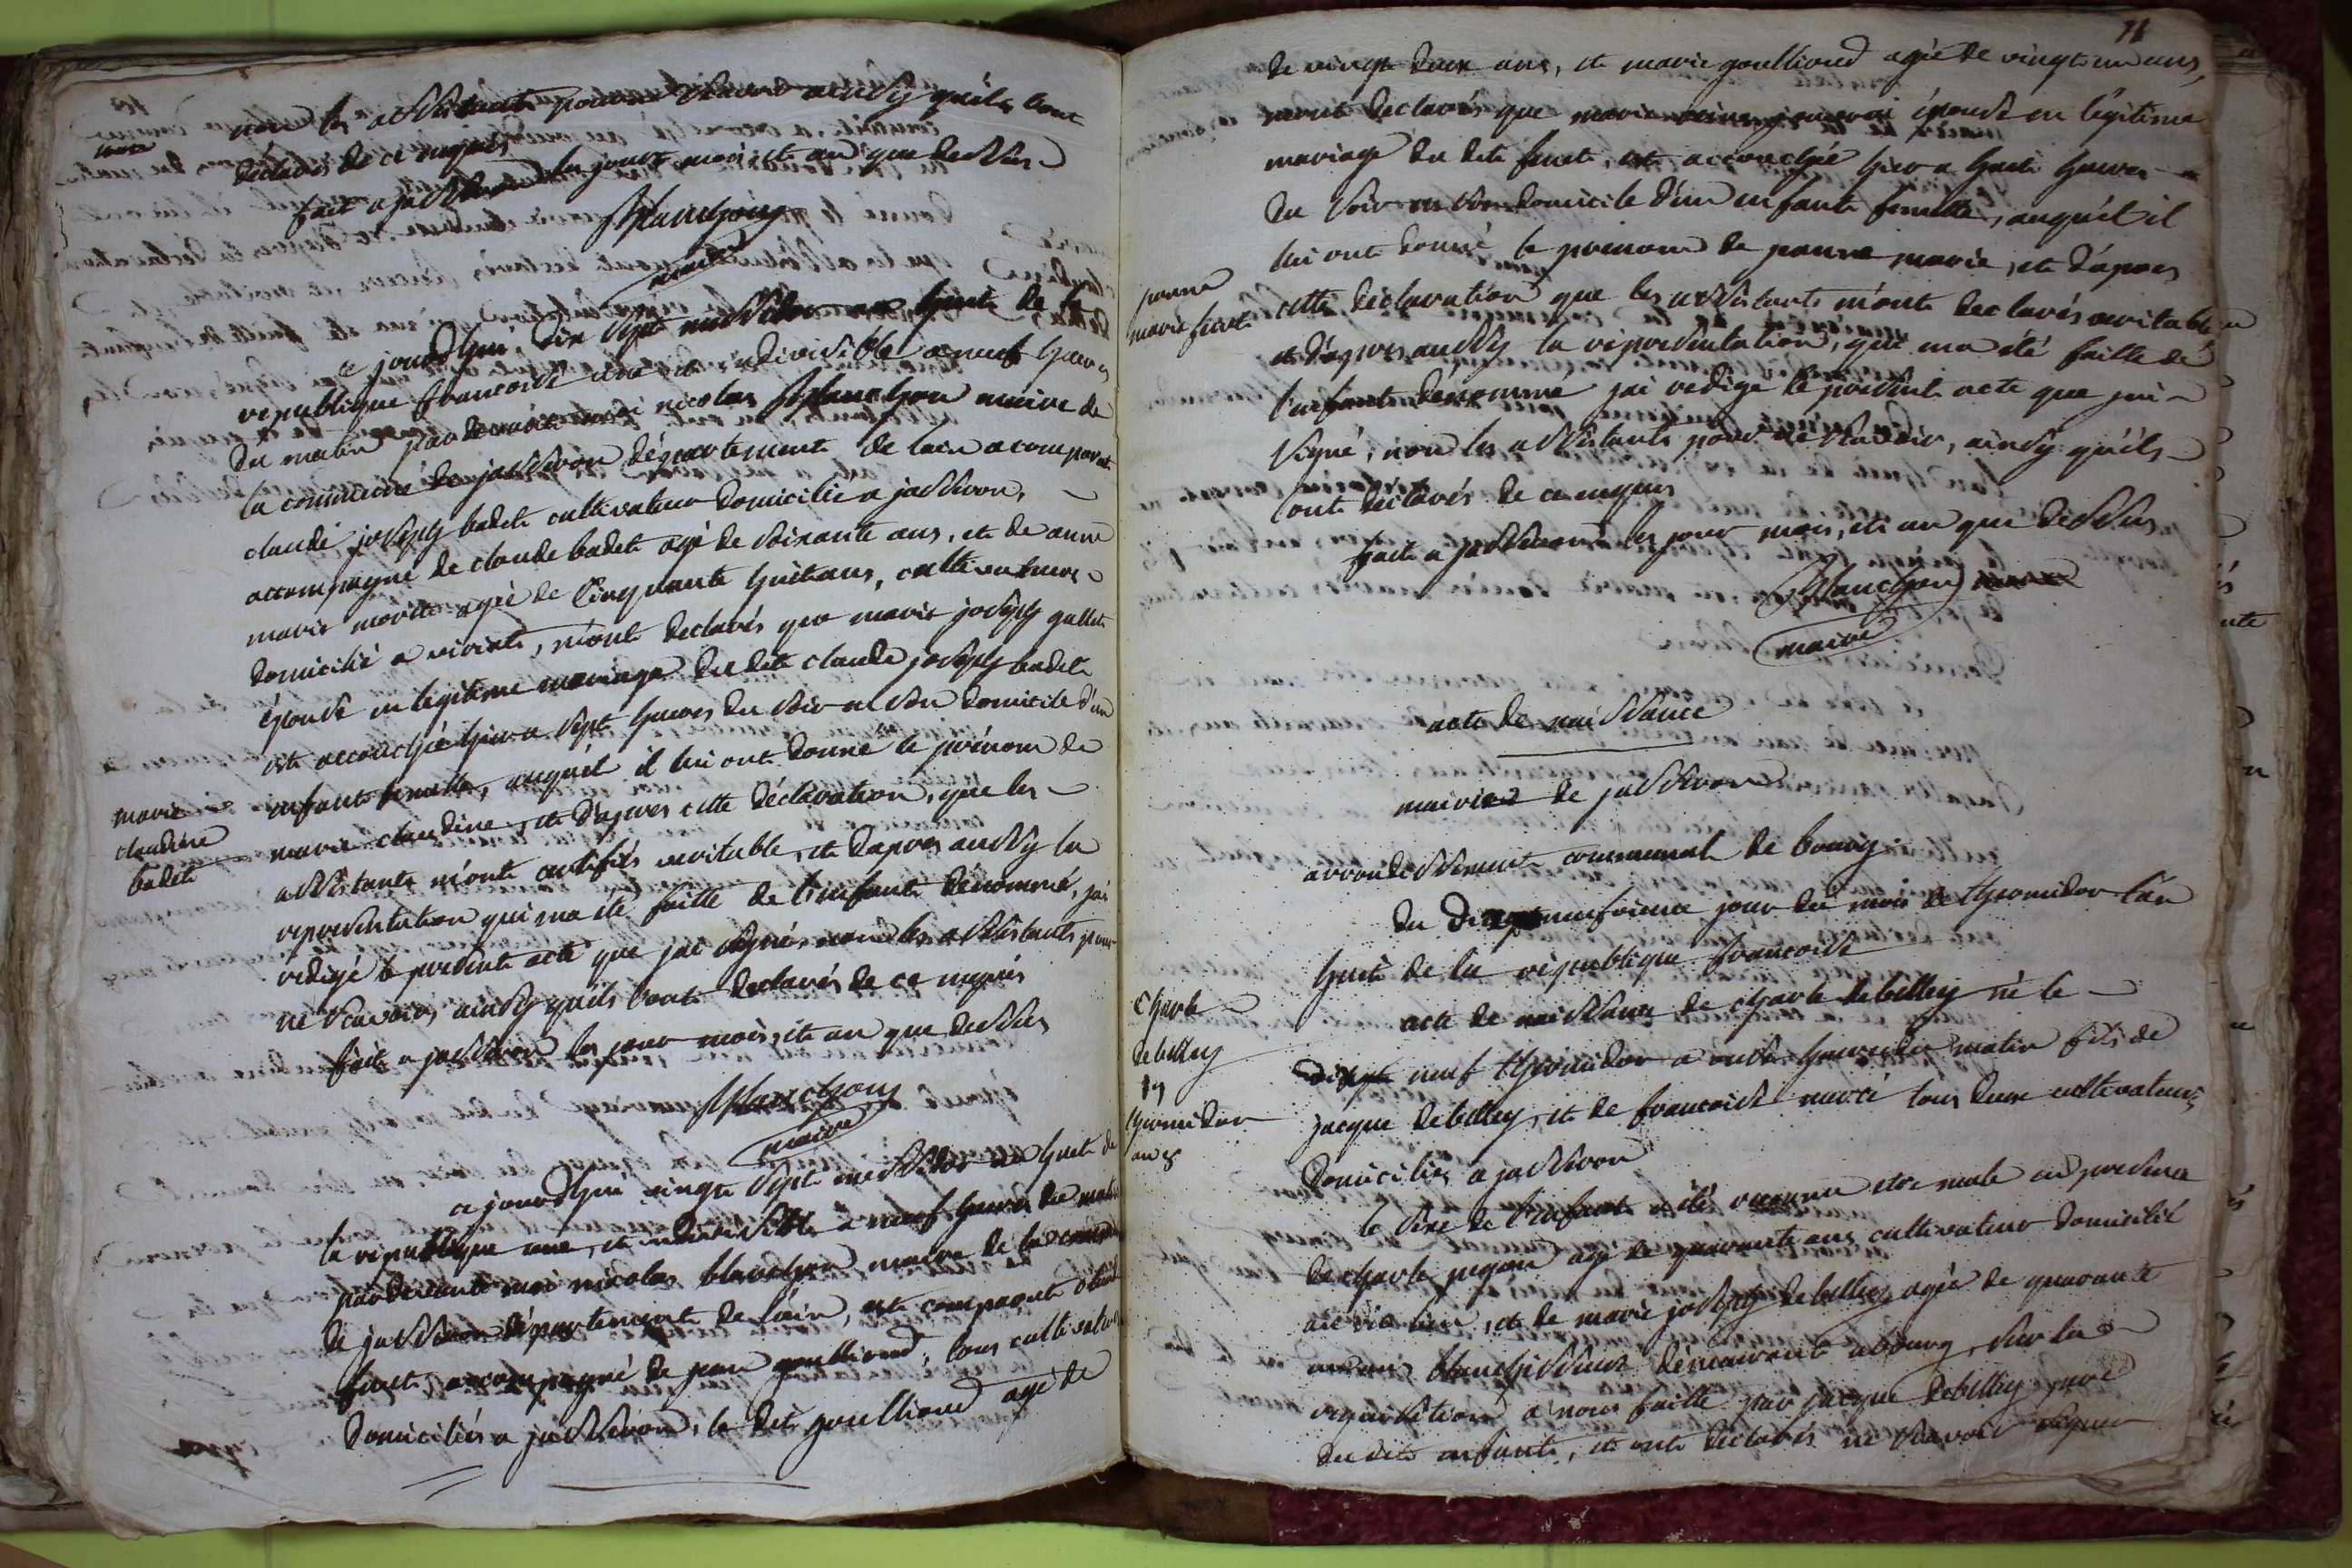 non les assistants pour ne scavoir ainsy quils lont
déclarés de ce enquis
fait a jasseron les jour mois et an que dessus
Blanchon
maire
ce jourdhui dix sept messidor an huit de la
republique francoise une et indivisible a neuf heures
du matin pardevant moi nicolas Blanchon maire de
la commune de jasseron département de lain a comparut
claude joseph badet cultivateur domicilié a jasseron,
accompagné de claude badet agé de soixante ans, et de anne
marie morttet agée de Cinquante huit ans, cultivateurs
domicilié a viriat, mont declarés que marie joseph gallet
épouse en legitime mariage du dit claude joseph badet
est accouchée hier a sept heures du soir en son domicile d'un
enfant femelle, auquél il lui ont donné le prénom de
marie claudine, et d'apres cette déclaration, que les
marie
claudine
badet
assistants m'ont certifiés veritable, et dapres aussy la
representation qui ma été faitte de l'enfant dénommé, jai
redigé le present acte que jai signé, non les assistants pour
ne scavoir, ainsy quils lont declarés de ce enquis
fait a jasseron les jour mois et an que dessus
Blanchon
maire
ce jourdhui vingt sept messidor an huit de
la republique une et indivisible a neuf heures du matin
pardevant moi nicolas blanchon maire de la commune
de jasseron département de l'ain, est comparut
accompagné de jean goulliond, tous cultivateurs
domiciliés a jasseron, le dit goulliond agé de
11
de vingt deux ans, et marie goulliond agée de vingt un ans,
mont declarés que marie épouse en légitime
mariage du dit est accouchée hier a huit heures
du soir en son domicile d'un enfant femelle, auquél il
lui ont donné le prenom de jeanne marie, et d'apres
jeanne
marie
cette déclaration que les assistants m'ont declarés veritable
et d'apres aussy la representation, qui ma été faitte de
l'enfant dénommé jai redigé le présent acte que jai
signé, non les assistants pour ne scavoir, ainsy quils
lont declarés de ce enquis
fait a jasseron les jour mois, et an que dessus
Blanchon
maire
acte de naissance
mairie de jasseron
arrondissement communal de bourg
du neufvieme jour du mois de thermidor l'an
huit de la république francoise
Charle
debelley
19
thermidor
an 8
acte de naissance de charle debelley né le
neuf thermidor a onze heures du matin fils de
jacque debelley, et de francoise tous deux cultivateurs
domiciliés a jasseron
le sexe de l'enfant a été reconnu etre male en presence
de charle agé de quarante ans cultivateur domicilié
au dit lieu, et de marie joseph debelley agée de quarante
blanchisseuse demeurant a bourg, sur la
requisition a nous faitte par jacque debelley pere
du dit enfant, et ont declarés ne scavoir signer